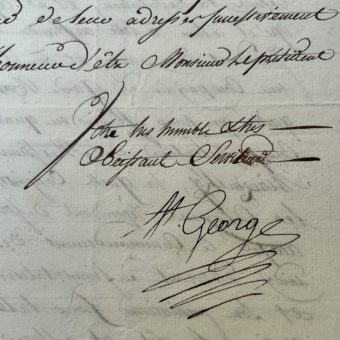 de leur adresser successivement
d'être Monsieur le président
Votre très humble & très
obéissant Serviteur
St. George